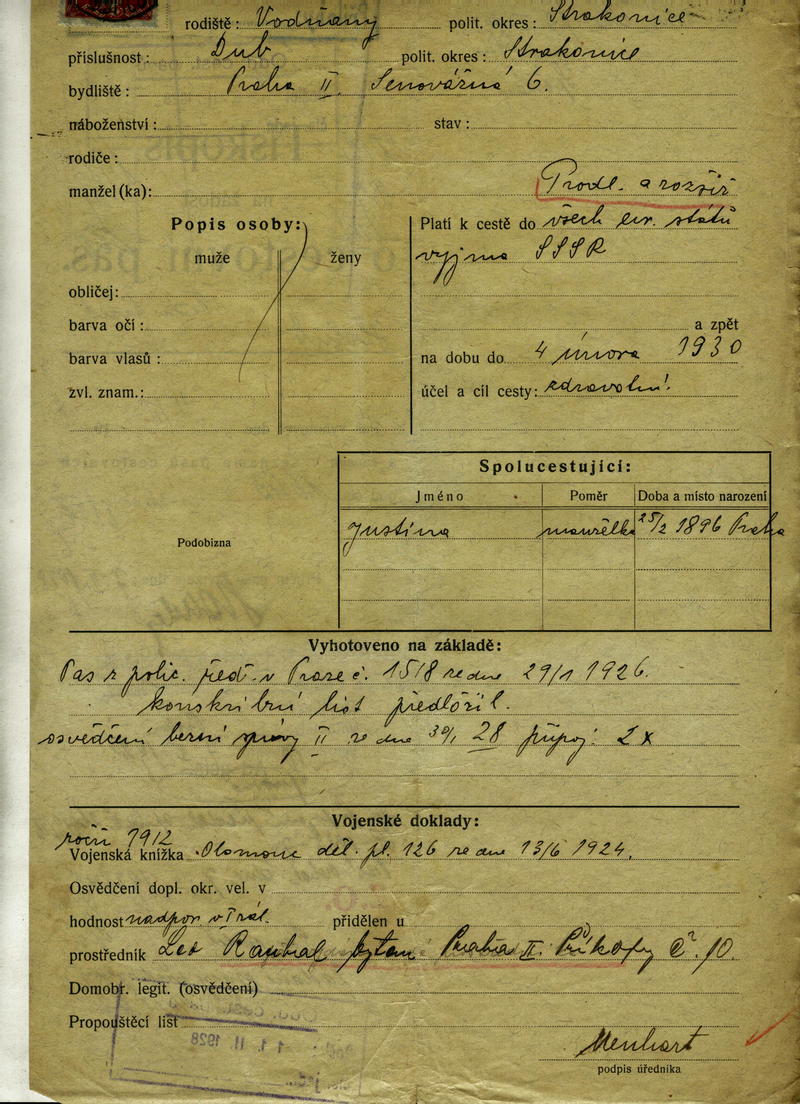 rodiště: Vodňany polit. okres: Strakonice
příslušnost: Dub polit. okres: Strakonice
bydliště: Praha II. Senovážná 6.
náboženství: stav:
rodiče:
manžel(ka): Prodl. a rozšíř
Popis osoby:
muže ženy
obličej:
barva očí:
barva vlasů:
zvl. znam.:
Platí k cestě do všech eur. států
vyjma SSSR
a zpět
na dobu do 4 února 1930
účel a cíl cesty: zdravotní
Podobizna
Spolucestující:
Jméno Poměr Doba a místo narození
Justina manželka 25/2 1896 Praha
Vyhotoveno na základě:
Pas z polic. řed. v Praze č. 1518 ze dne 29/1 1926.
konskribní list předložil.
osvědčení berní správy II ze dne 30/1 28 připoj. 2x
Vojenské doklady:
roč. 1912
Vojenská knížka Olomouc děl. pl. 126 ze dne 13/6 1924.
Osvědčení dopl. okr. vel. v
hodnost nadpor. v přidělen u
prostředník Praha II. Příkopy č. 10.
Domobr. legit. (osvědčení)
Propouštěcí list
11 II 1928
Menhart
podpis úředníka